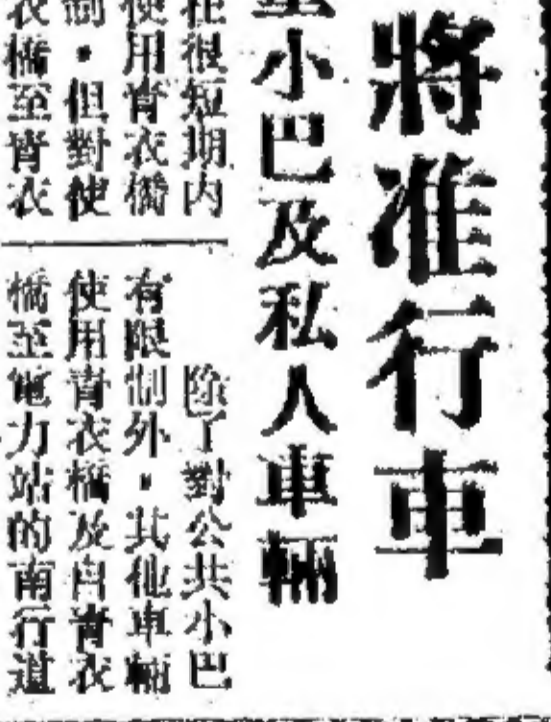 將准行車
小巴及私人車輛
在很短期內
使用青衣橋
制。但對使
衣橋至青衣
除了對公共小巴
有限制外。其他車輛
使用青衣橋及自青衣
橋至電力站的南行道